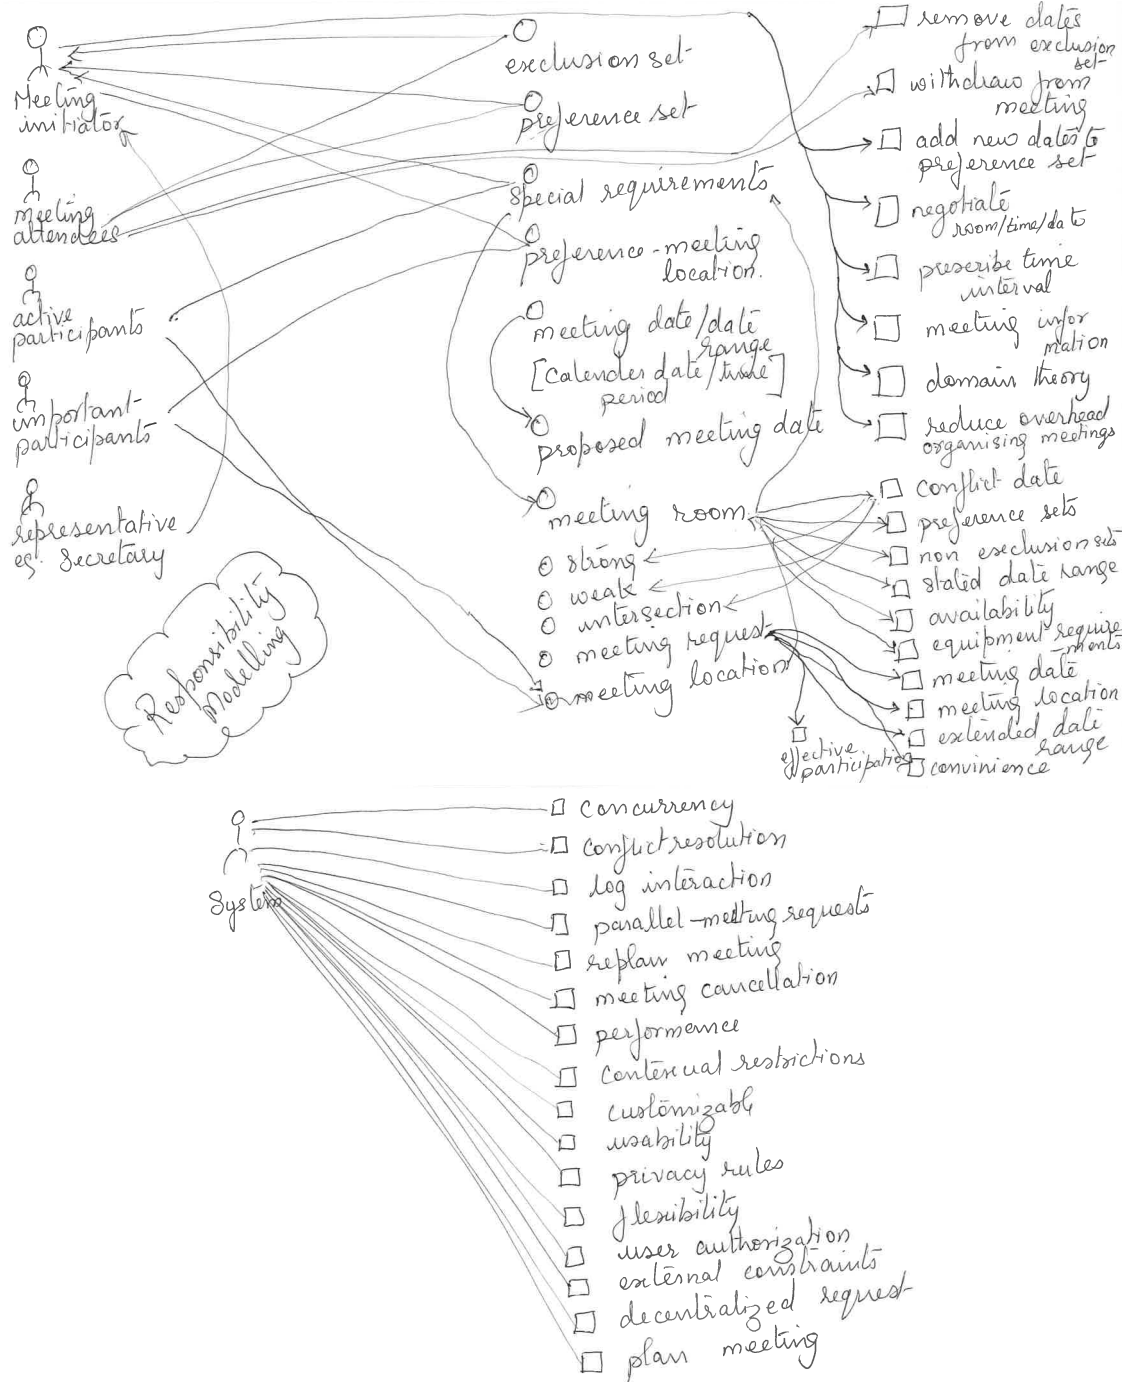 Meeting
initiator
meeting
attendees
active
participants
important
participants
representative
eg. Secretary
Responsibility
Modelling
exclusion set
preference set
special requirements
preference-meeting
location.
meeting date/date
range
[Calender date/time]
period
proposed meeting date
meeting room
strong
weak
intersection
meeting request
meeting location
remove dates
from exclusion
set
withdraw from
meeting
add new dates to
preference set
negotiate
room/time/date
prescribe time
interval
meeting infor
mation
domain theory
reduce overhead
organising meetings
conflict date
preference sets
non exclusion sets
stated date range
availability
equipment require
ments
meeting date
meeting location
extended date
range
convinience
effective
participation
System
concurrency
conflict resolution
log interaction
parallel-meeting requests
replan meeting
meeting cancellation
performance
restrictions
customizable
usability
privacy rules
flexibility
user authorization
external constraints
decentralized request
plan meeting